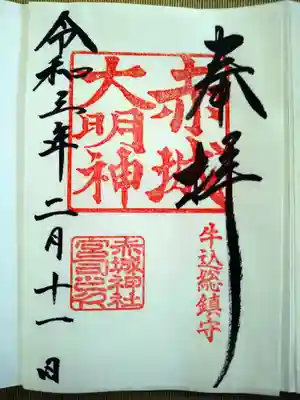 奉拝
赤城
大明神
牛込総鎮守
赤城神社
令和三年二月十一日